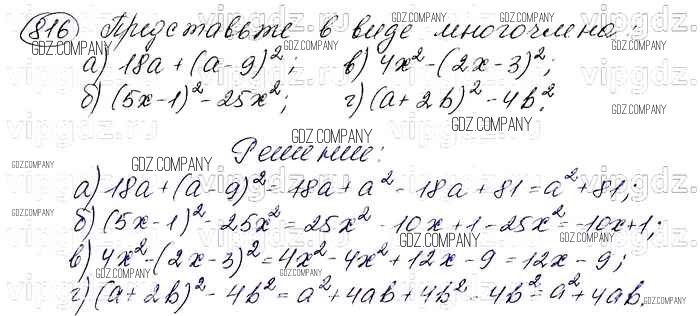 816 Представьте в виде многочлена:
а) 18a + (a - 9)²; в) 4x² - (2x - 3)²;
б) (5x - 1)² - 25x²; г) (a + 2b)² - 4b².
Решение:
а) 18a + (a - 9)² = 18a + a² - 18a + 81 = a² + 81;
б) (5x - 1)² - 25x² = 25x² - 10x + 1 - 25x² = -10x + 1;
в) 4x² - (2x - 3)² = 4x² - 4x² + 12x - 9 = 12x - 9;
г) (a + 2b)² - 4b² = a² + 4ab + 4b² - 4b² = a² + 4ab.